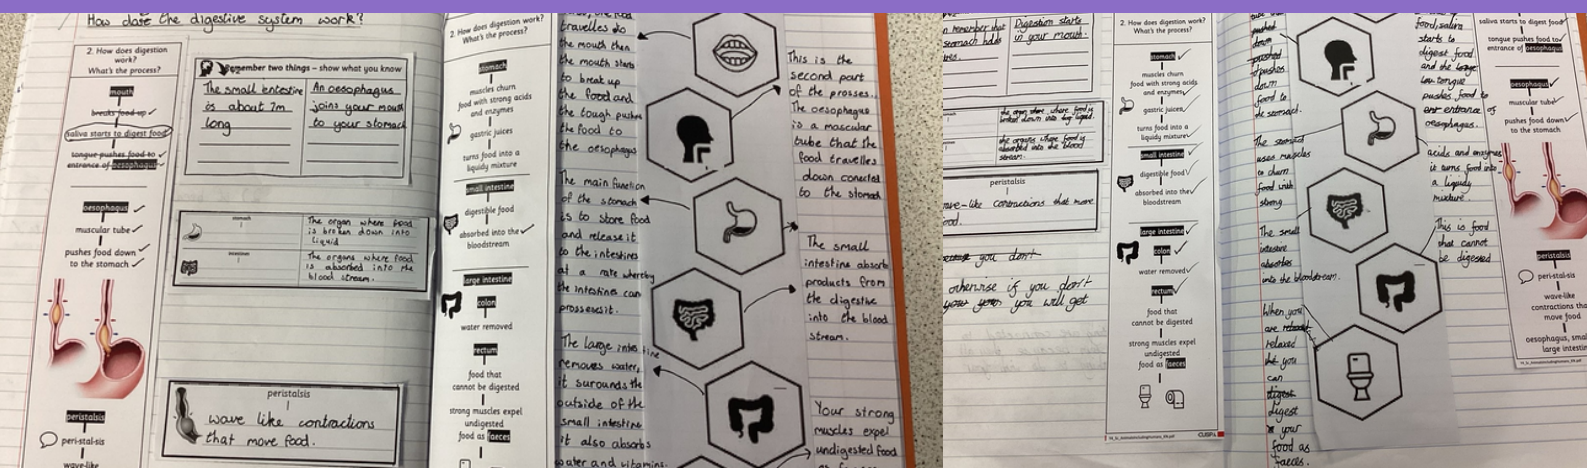 How dose the digestive system work?
2. How does digestion
work?
What's the process?
mouth
breaks food up
saliva starts to digest food
tongue pushes food to
entrance of oesophagus
oesophagus
muscular tube
pushes food down
to the stomach
peristalsis
peri-stal-sis
wave-like
Remember two things – show what you know
The small entestine
is about 7m
long
An oesophagus
joins your mouth
to your stomach
stomach
The organ where food
is broken down into
liquid
intestines
The organs where food
is absorbed into the
blood stream.
peristalsis
wave like contractions
that move food.
2. How does digestion work?
What's the process?
stomach
muscles churn
food with strong acids
and enzymes
gastric juices
turns food into a
liquidy mixture
small intestine
digestible food
absorbed into the
bloodstream
large intestine
colon
water removed
rectum
food that
cannot be digested
strong muscles expel
undigested
food as faeces
travelles do
the mouth then
the mouth starts
to break up
the food and
the tough pushes
the food to
the oesophagus
The main function
of the stomach
is to store food
and release it
to the intestines
at a rate whereby
the intestines can
prosseses it.
The large intestine
removes water,
it surounds the
outside of the
small intestine
it also absorbs
water and vitamins.
This is the
second part
of the prosses.
The oesophagus
is a mascular
tube that the
food travelles
down conected
to the stomach
The small
intestine absorb
products from
the digestive
into the blood
stream.
Your strong
muscles expel
undigested food
remember that
stomach holds
Digestion starts
in your mouth.
the organs where food is
absorbed into the blood
stream.
peristalsis
wave-like contractions that move
food.
you don't
otherwise if you don't
you will get
2. How does digestion work?
What's the process?
stomach
muscles churn
food with strong acids
and enzymes
gastric juices
turns food into a
liquidy mixture
small intestine
digestible food
absorbed into the
bloodstream
large intestine
colon
water removed
rectum
food that
cannot be digested
strong muscles expel
undigested
food as faeces
CUSP
pushed
down
pushes
down
food to
the stomach.
The stomach
uses muscles
to churn
food with
strong
The small
intestine
absorbes
into the bloodstream.
When you
are
relaxed
you
can
digest
digest
your
food as
faeces.
food, saliva
starts to
digest food
and the
tongue
pushes food to
entrance of
oesophagus.
acids and enzymes
it turns food into
a liquidy
mixture.
This is food
that cannot
be digested
saliva starts to digest food
tongue pushes food to
entrance of oesophagus
oesophagus
muscular tube
pushes food down
to the stomach
peristalsis
peri-stal-sis
wave-like
contractions tha
move food
oesophagus, smal
large intestin